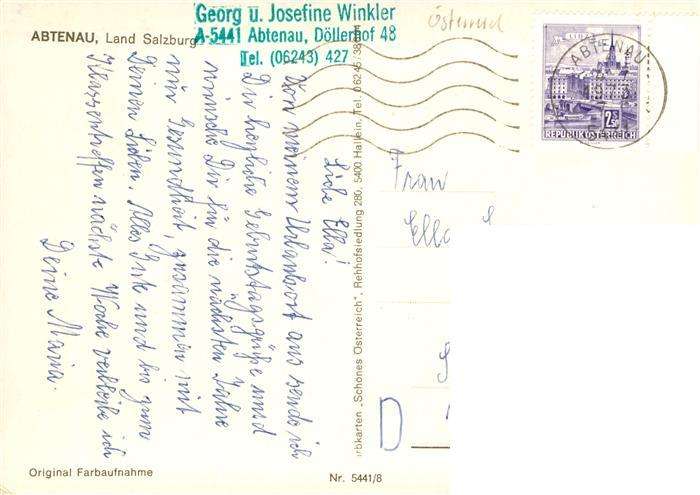 ABTENAU, Land Salzburg
Georg u. Josefine Winkler
A-5441 Abtenau, Döllerhof 48
Tel. (06243) 427
Österreich
LINZ
2S
REPUBLIK ÖSTERREICH
ABTENAU
Liebe Ella!
Von meinem Urlaubsort aus sende ich
Dir herzliche Geburtstagsgrüße und
wünsche Dir für die nächsten Jahre
nur Gesundheit, zusammen mit
Deinen Lieben. Alles Gute und bis zum
Klassentreffen nächste Woche verbleibe ich
Deine Maria.
Farbkarten „Schönes Österreich", Rehhofsiedlung 280, 5400 Hallein, Tel. 06245/
Frau
Ella
D
Original Farbaufnahme
Nr. 5441/8